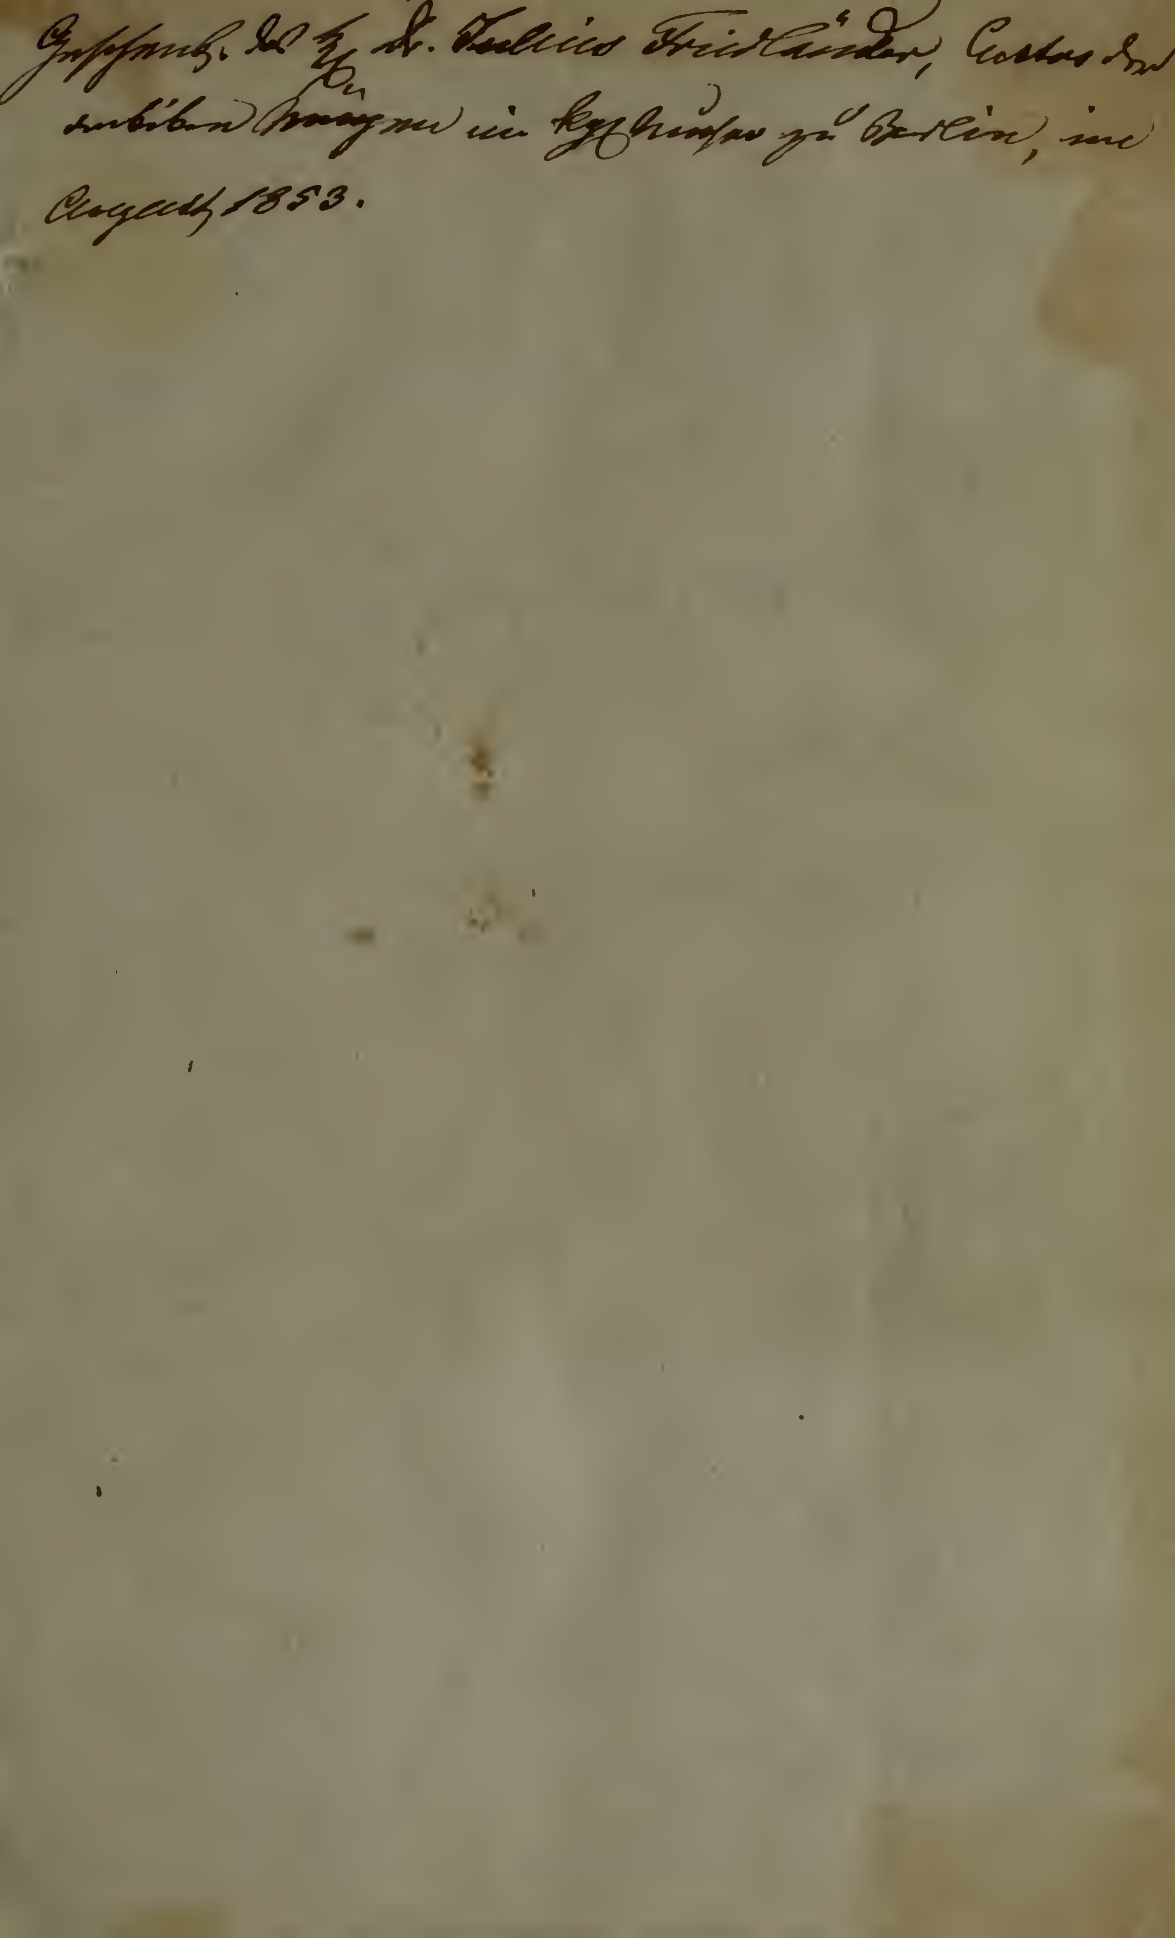 Geschenk des H. Dr. Julius Friedländer, Custos der
antiken Münzen im kgl. Museo zu Berlin, im
August 1853.